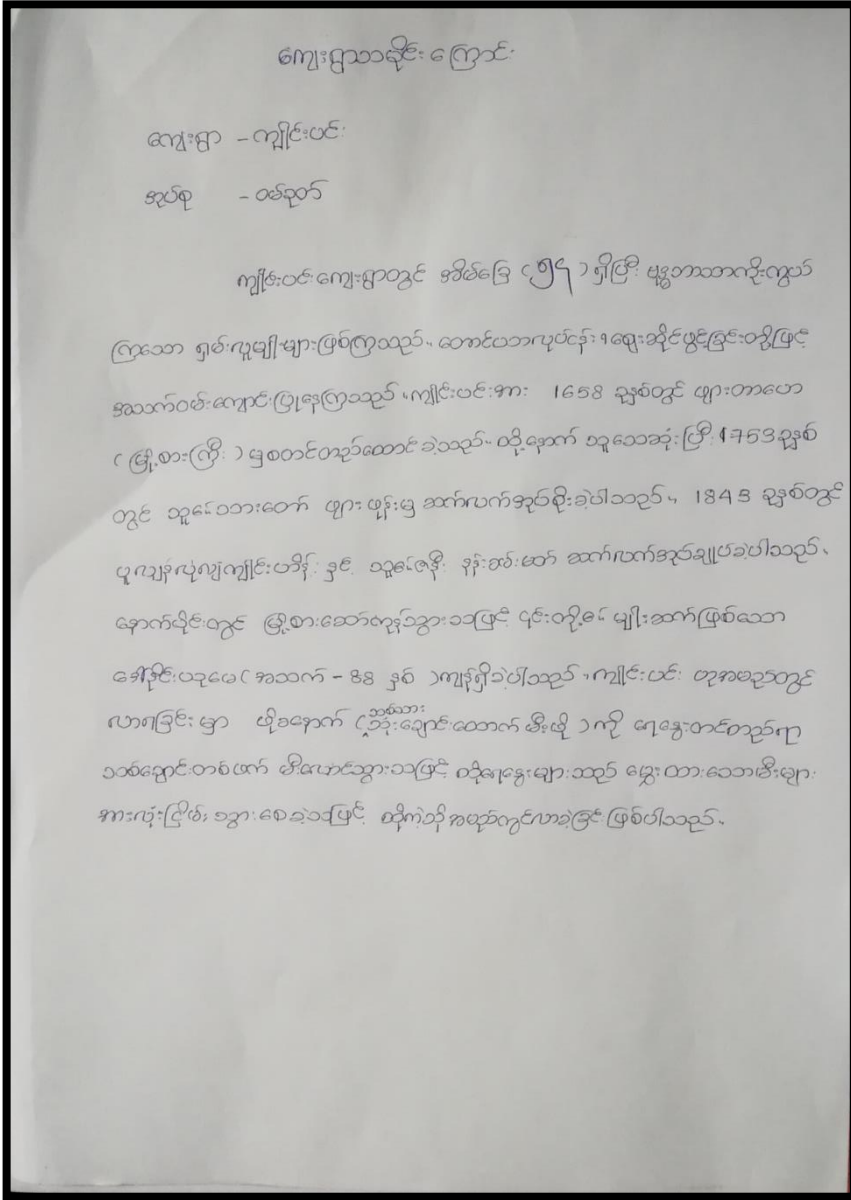 ကျေးရွာသမိုင်းကြောင်း
ကျေးရွာ - ကျိုင်းပင်း
အုပ်စု - ဝမ်ခုတ်
ကျိုင်းပင်းကျေးရွာတွင် အိမ်ခြေ (၅၄) ရှိပြီး ဗုဒ္ဓဘာသာကိုးကွယ်
ကြသော ရှမ်းလူမျိုးများဖြစ်ကြသည်။ တောင်ယာလုပ်ငန်း၊ ဈေးဆိုင်ဖွင့်ခြင်းတို့ဖြင့်
အသက်ဝမ်းကျောင်းပြုနေကြသည်။ ကျိုင်းပင်းအား 1658 ခုနှစ်တွင် ဖျားတာဟေ
(မြို့စားကြီး) မှစတင်တည်ထောင်ခဲ့သည်။ ထို့နောက် သူသေဆုံးပြီး 1753 ခုနှစ်
တွင် သူ၏သားတော် ဖျားဖုန်းမှ ဆက်လက်အုပ်စိုးခဲ့ပါသည်။ 1843 ခုနှစ်တွင်
ပူလျှန်လုံလျှကျိုင်းဟိန်း နှင့် သူ၏ဇနီး နန်းအိမ်မတ် ဆက်လက်အုပ်ချုပ်ခဲ့ပါသည်။
နောက်ပိုင်းတွင် မြို့စားဆော်ကုန်သွားသဖြင့် ၎င်းတို့၏ မျိုးဆက်ဖြစ်သော
ဒေါ်ခိုင်းယဒုမေ (အသက် - 88 နှစ်) ကျန်ရှိခဲ့ပါသည်။ ကျိုင်းပင်း ဟုအမည်တွင်
လာရခြင်းမှာ ဖိုခနောက် (သစ်သားသုံးချောင်းထောက် မီးဖို) ကို ရေနွေးတင်တည်ရာ
သစ်ချောင်းတစ်ဖက် မီးလောင်သွားသဖြင့် ထိုရေနွေးများသည် မွှေးထားသောမီးများ
အားလုံးငြိမ်းသွားစေခဲ့သဖြင့် ထိုကဲ့သို့အမည်တွင်လာခဲ့ခြင်းဖြစ်ပါသည်။